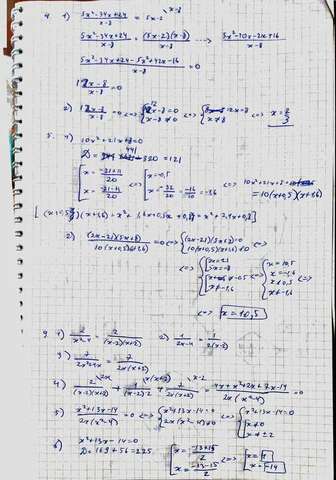 4. 1) (5x²-34x+24)/(x-8) = 5x-2 \x-8
(5x²-34x+24)/(x-8) = (5x-2)(x-8)/(x-8) → (5x²-40x-2x+16)/(x-8)
(5x²-34x+24-5x²+42x-16)/(x-8) = 0
(x-8) = 0
2) <=> { x-8≠0 <=> { x≠8 <=>
5. 1) 10x²+21x+8=0
D = 441 - 320 = 121
[ x = (-21+11)/20 [ x = -0,5
[ x = (-21-11)/20 <=> [ x = -32/20 = -16/10 = -1,6 <=> 10x²+21x+8 = 10(x+0,5)(x+1,6)
(x+1,6) = x² + 1,6x+0,5x+0,8 = x²+2,1x+0,8]
2) (2x-21)(5x+8)/(10(x+0,5)(x+1,6)) = 0 <=> { (2x-21)(5x+8)=0
{ 10(x+0,5)(x+1,6)≠0 <=>
<=> { [ 2x=21
5x=-8
x≠-0,5
x≠-1,6 <=> { [ x=10,5
x=-1,6
x≠-0,5
x≠-1,6
<=> x=10,5
9. 1) 2/(x²-4) = 2/(x-2)(x+2) 2) 1/(2x-4) = 1/2(x-2)
3) 7/(2x²+4x) = 7/2x(x+2)
4) 2/(x-2)(x+2) \2x + 1/(x-2)2 \x(x+2) + 7/2x(x+2) \x-2 = (4x+x²+2x+7x-14)/2x(x²-4) = 0
5) (x²+13x-14)/2x(x²-4) = 0 <=> { x²+13x-14=0
2x(x²-4)≠0 <=> { x²+13x-14=0
x≠0
x≠±2
6) x²+13x-14=0
D=169+56=225 [ x = (-13+15)/2
x = (-13-15)/2 <=> [ x=1
x=-14